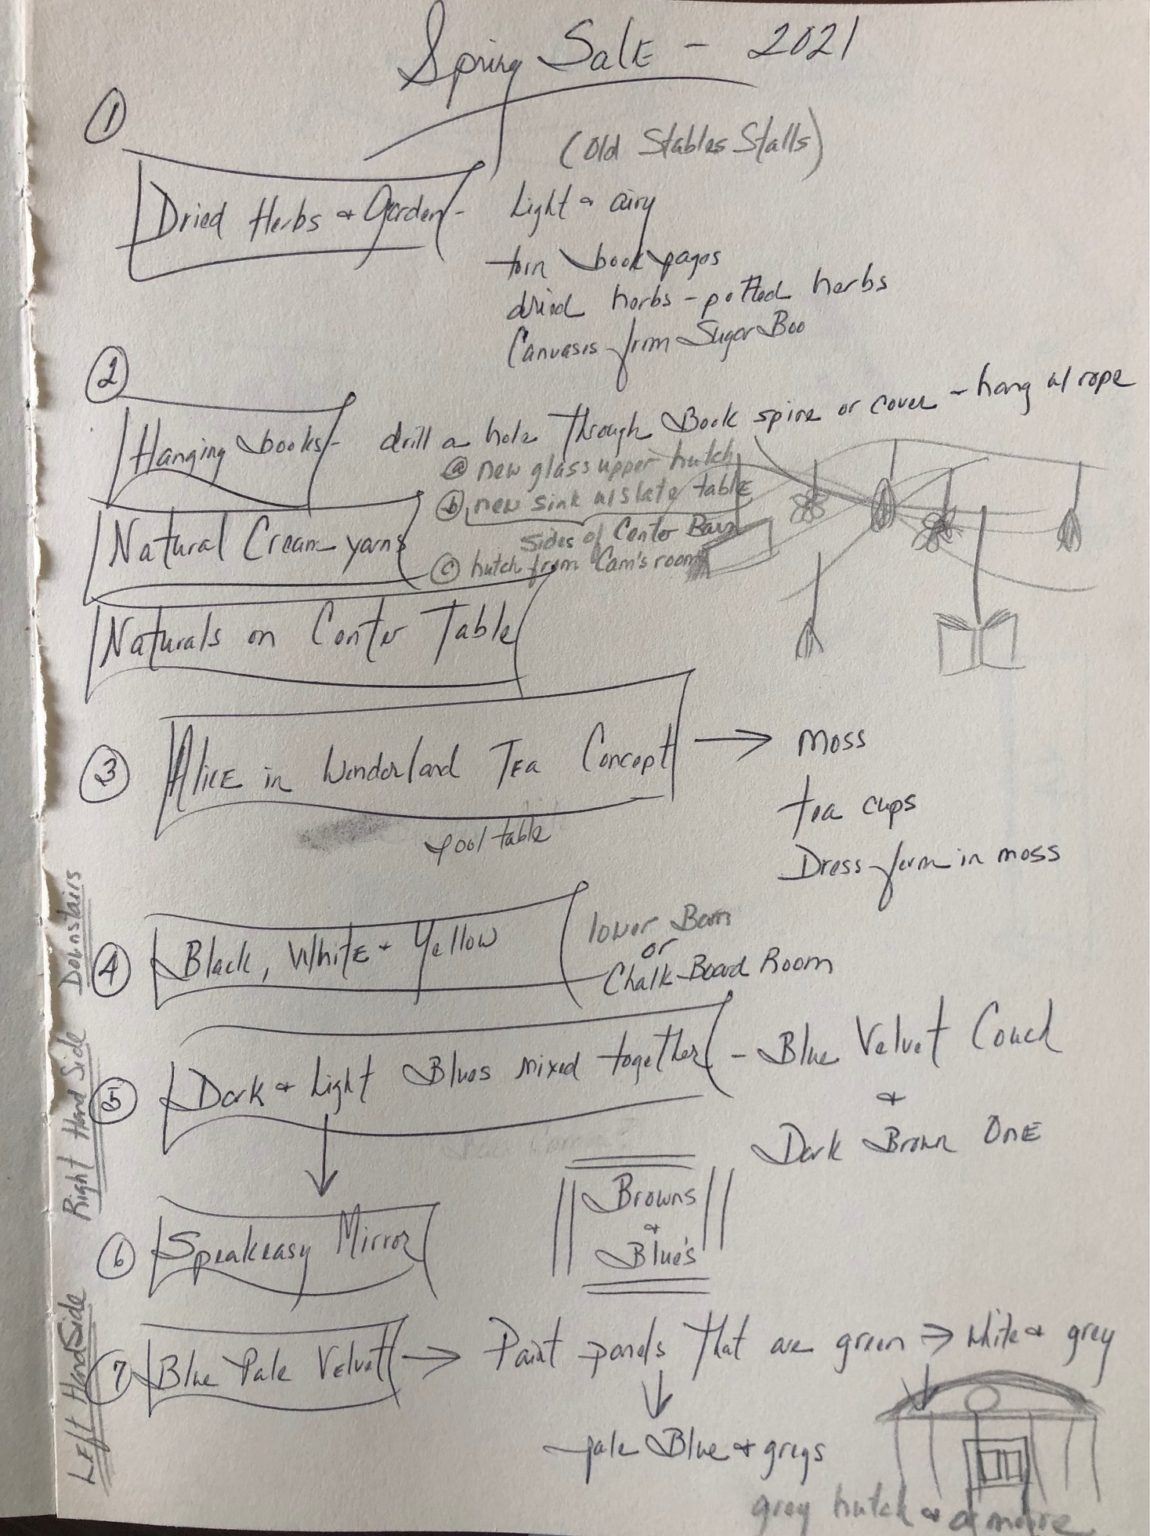 Spring Sale - 2021
①
(Old Stables Stalls)
Dried Herbs & Garden - Light & airy
torn book pages
dried herbs - potted herbs
Canvases from Sugar Boo
②
Hanging books - drill a hole through Book spine or cover - hang w/ rope
ⓐ new glass upper hutch
ⓑ new sink w/ slate table
sides of Center Barn
Natural Cream yarns
ⓒ hutch from Cam's room
Naturals on Center Table
③ Alice in Wonderland Tea Concept → moss
tea cups
pool table
Dress form in moss
④ Black, White & Yellow
lower Barn
or
Chalk-Board Room
⑤ Dark & Light Blues mixed together - Blue Velvet Couch
&
Dark Brown One
Browns
&
Blue's
⑥ Speakeasy Mirror
⑦ Blue Pale Velvet → Paint panels that are green → white & grey
pale Blue & greys
grey hutch & armoire
Downstairs
Right Hand Side
Left Hand Side